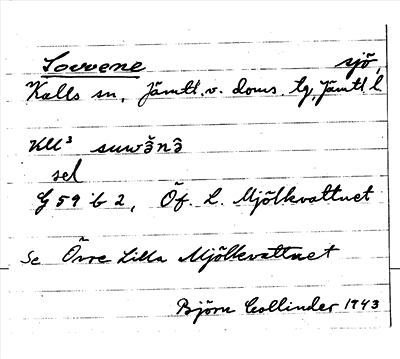 Sovvene sjö,
Kalls sn, Jämtl. v. doms. tg, Jämtl l
Kll³ suwə̌nə̂
sel
G 59 b 2, Öf. L. Mjölkvattnet
Se Övre Lilla Mjölkvattnet
Björn Collinder 1943